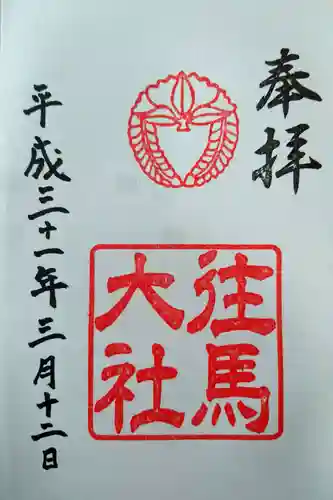 奉拝
往馬
大社
平成三十一年三月十二日